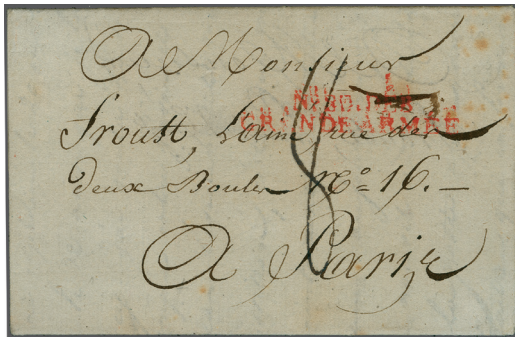 A Monsieur
No. 3D.
GRANDE ARMÉE
Froust, Lainé, rue des
deux Boules No 16. —
A Paris
8